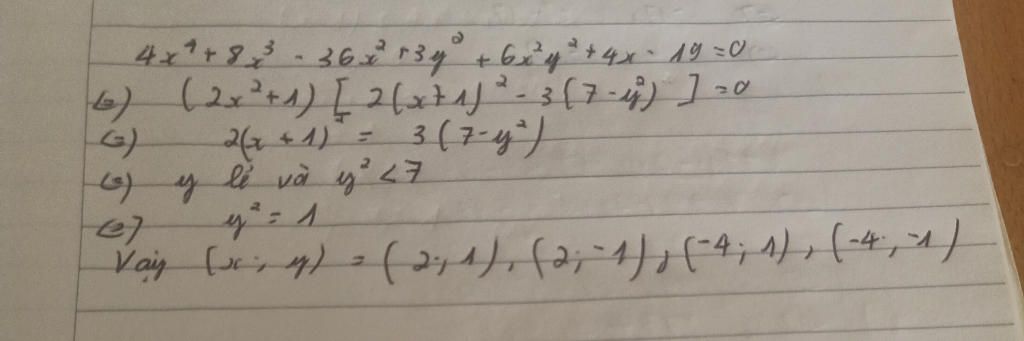 4x⁴ + 8x³ - 36x² + 3y² + 6x²y² + 4x - 19 = 0
(=) (2x² + 1) [ 2(x + 1)² - 3(7 - y²) ] = 0
(=) 2(x + 1)² = 3(7 - y²)
(=) y lẻ và y² < 7
(=) y² = 1
Vậy (x; y) = (2; 1), (2; -1), (-4; 1), (-4; -1)